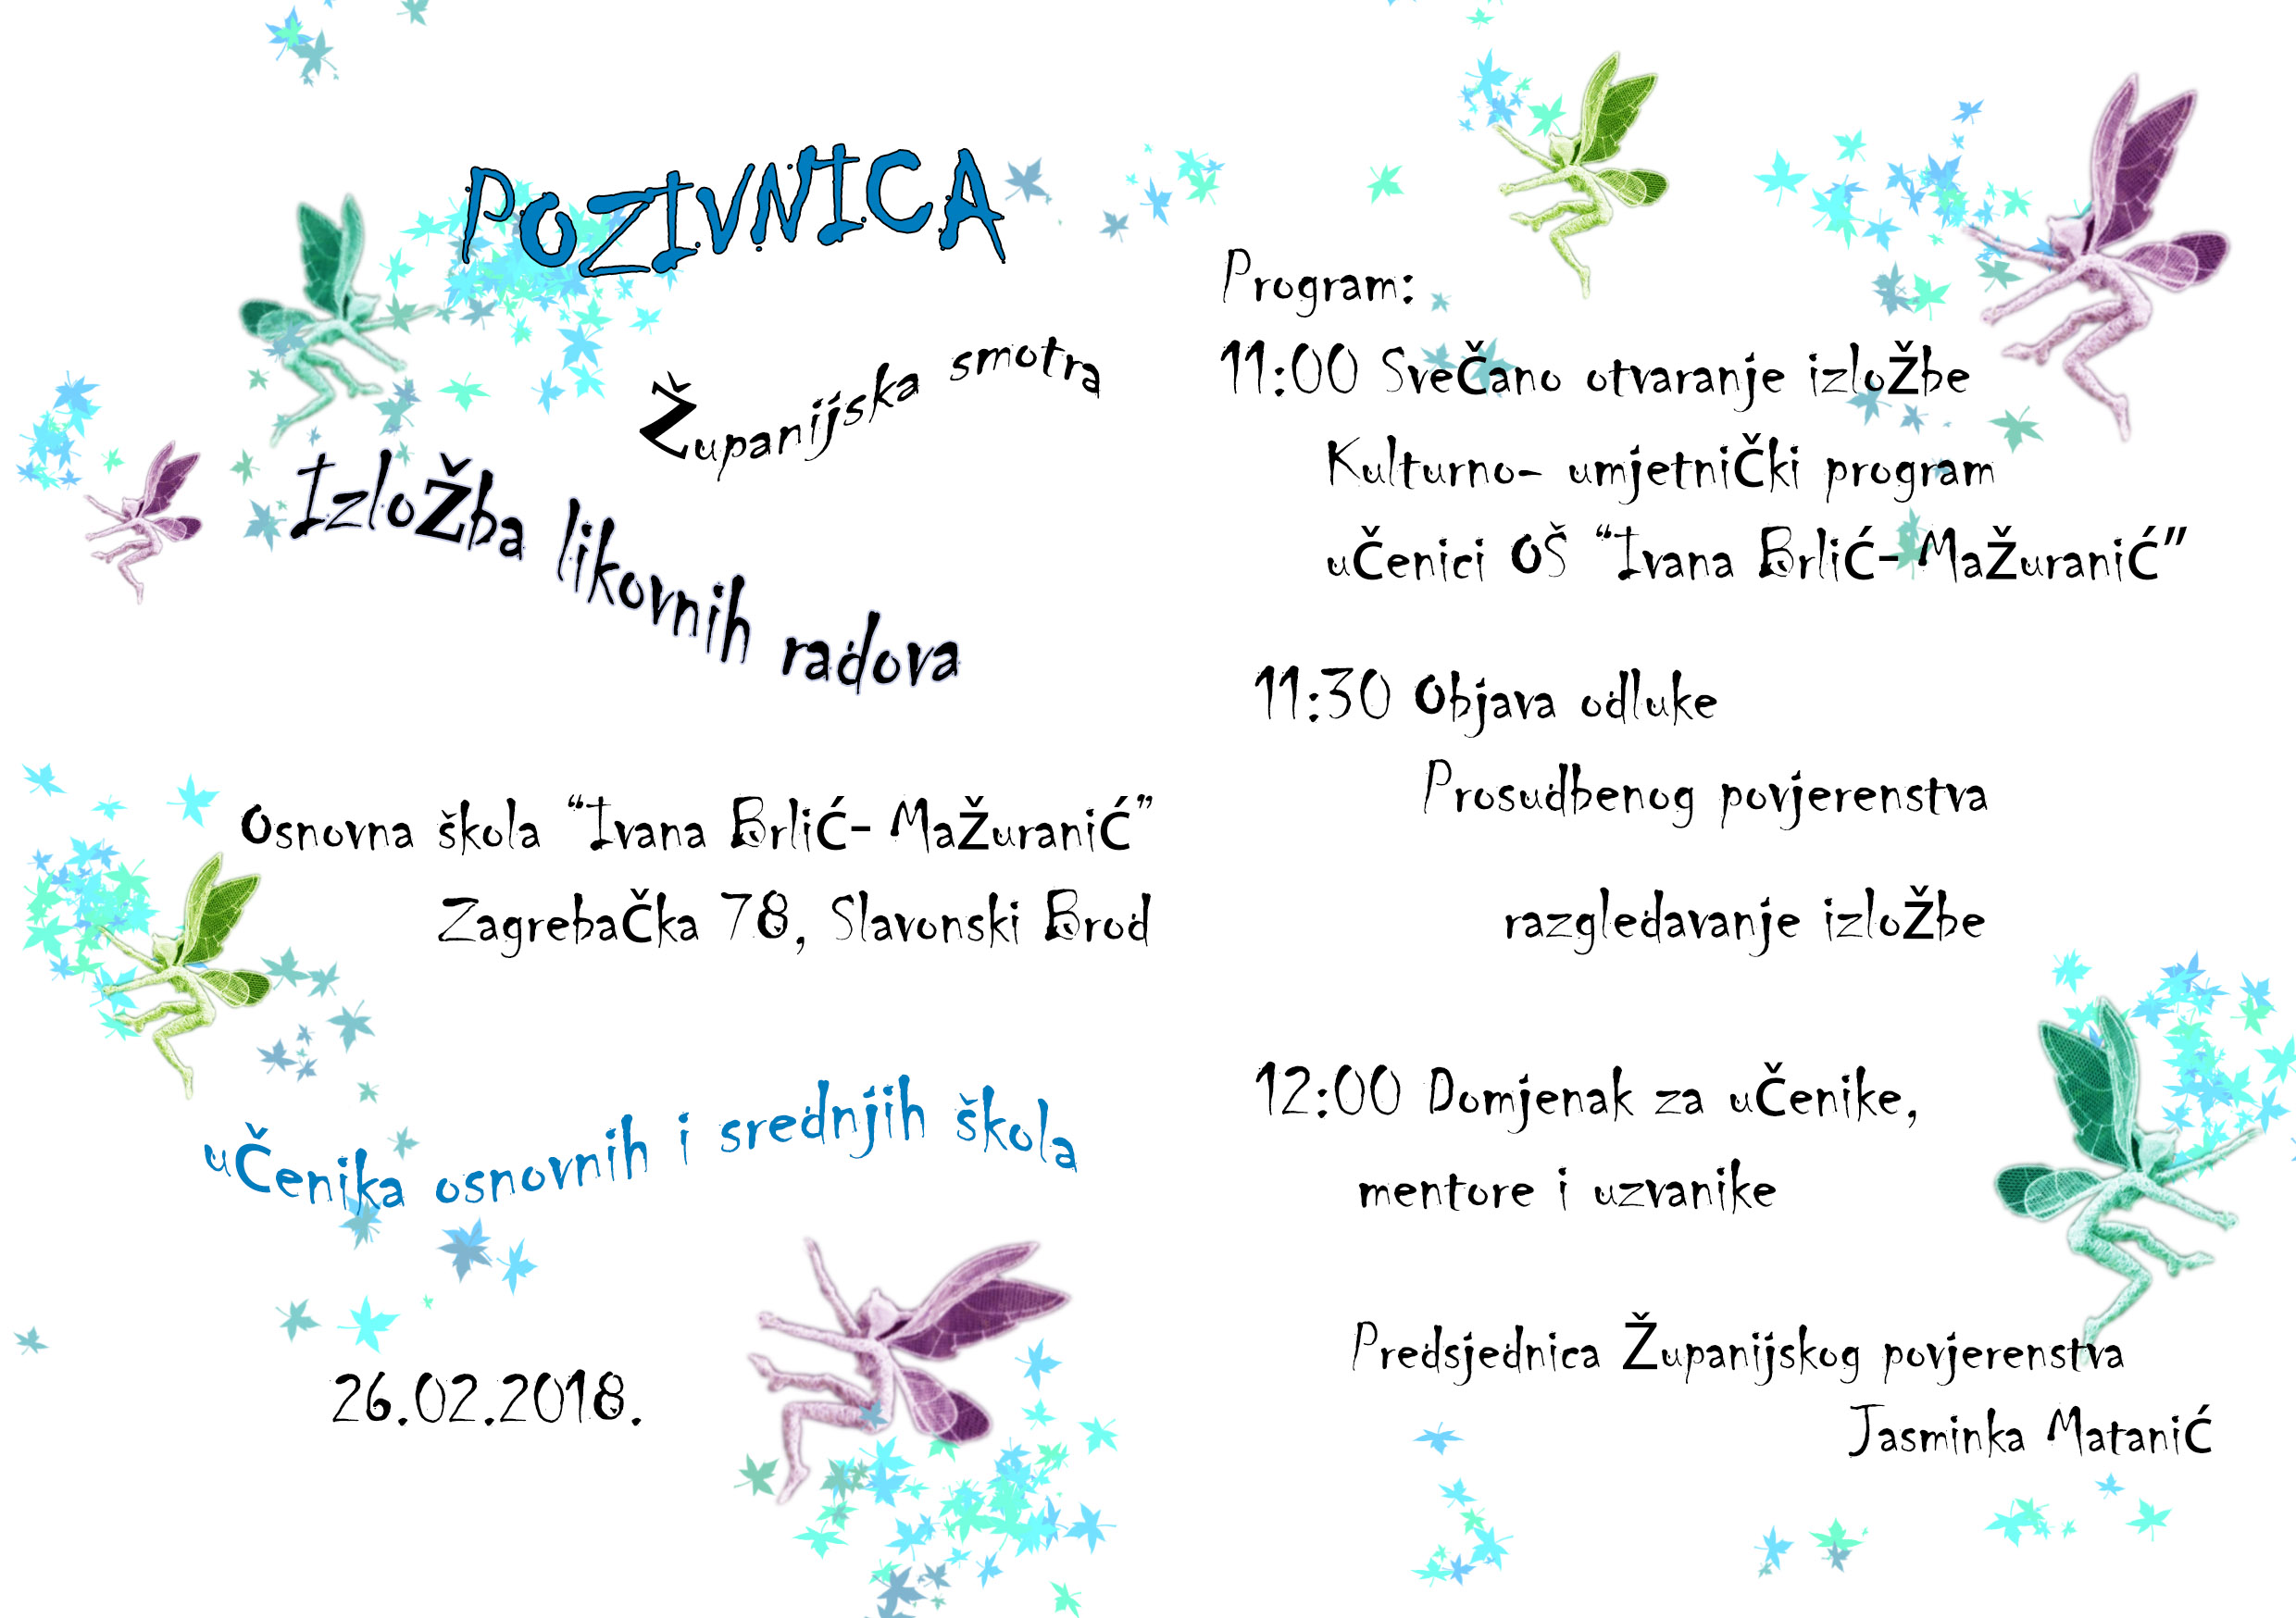 POZIVNICA
Županijska smotra
Izložba likovnih radova
Osnovna škola “Ivana Brlić- Mažuranić”
Zagrebačka 78, Slavonski Brod
učenika osnovnih i srednjih škola
26.02.2018.
Program:
11:00 Svečano otvaranje izložbe
Kulturno- umjetnički program
učenici OŠ “Ivana Brlić- Mažuranić”
11:30 Objava odluke
Prosudbenog povjerenstva
razgledavanje izložbe
12:00 Domjenak za učenike,
mentore i uzvanike
Predsjednica Županijskog povjerenstva
Jasminka Matanić